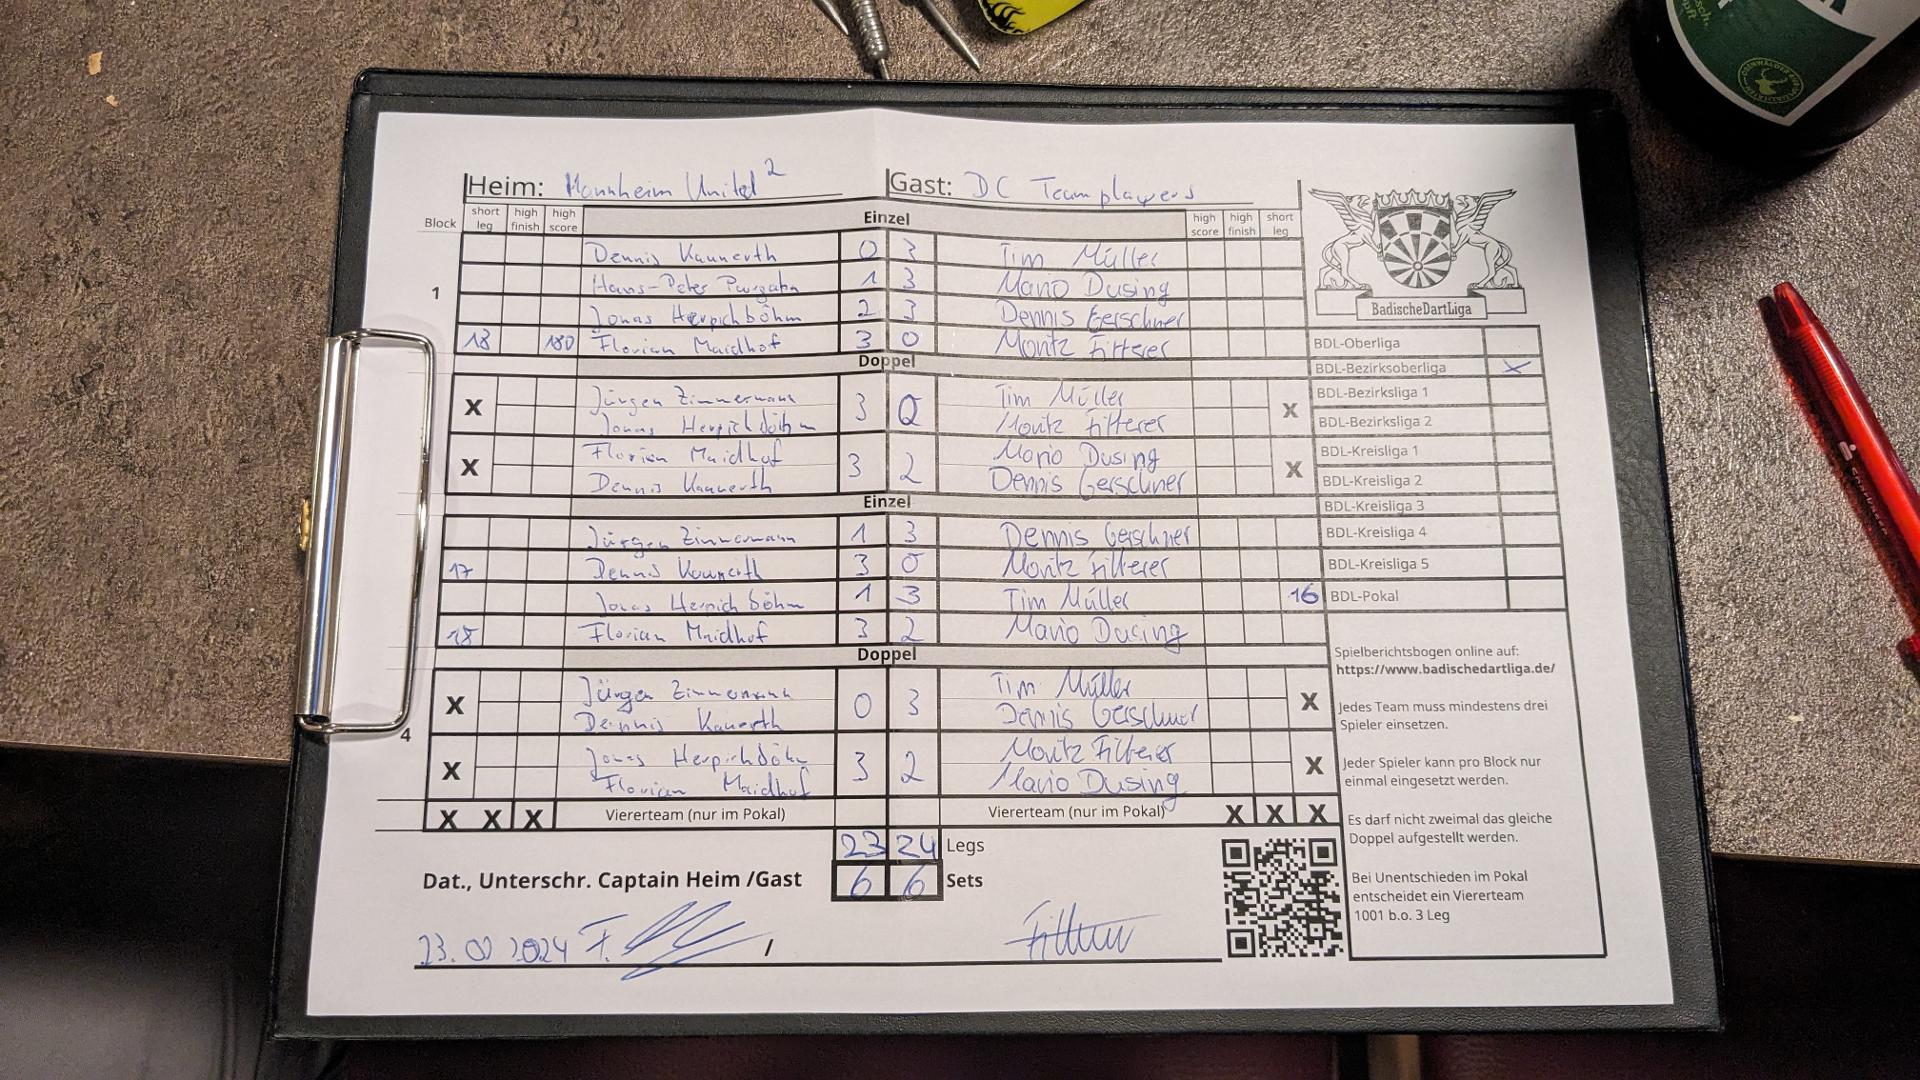 Heim: Mannheim United 2 Gast: DC Teamplayers
Block short leg high finish high score Einzel high score high finish short leg
1
Dennis Kannerth 0 3 Tim Müller
Hans-Peter 1 3 Mario Dusing
Jonas Herpichböhm 2 3 Dennis Gerschner
18 180 Florian Maidhof 3 0 Moritz Fitterer
Doppel
X Jürgen Zimmermann 3 0 Tim Müller X
Jonas Herpichböhm Moritz Fitterer
X Florian Maidhof 3 2 Mario Dusing X
Dennis Kannerth Dennis Gerschner
Einzel
Jürgen Zimmermann 1 3 Dennis Gerschner
17 Dennis Kannerth 3 0 Moritz Fitterer
Jonas Herpichböhm 1 3 Tim Müller 16
18 Florian Maidhof 3 2 Mario Dusing
Doppel
4
X Jürgen Zimmermann 0 3 Tim Müller X
Dennis Kanerth Dennis Gerschner
X Jonas Herpichböhm 3 2 Moritz Fitterer X
Florian Maidhof Mario Dusing
X X X Viererteam (nur im Pokal) Viererteam (nur im Pokal) X X X
23 24 Legs
Dat., Unterschr. Captain Heim /Gast 6 6 Sets
2024 F. /
BadischeDartLiga
BDL-Oberliga
BDL-Bezirksoberliga X
BDL-Bezirksliga 1
BDL-Bezirksliga 2
BDL-Kreisliga 1
BDL-Kreisliga 2
BDL-Kreisliga 3
BDL-Kreisliga 4
BDL-Kreisliga 5
BDL-Pokal
Spielberichtsbogen online auf:
https://www.badischedartliga.de/
Jedes Team muss mindestens drei
Spieler einsetzen.
Jeder Spieler kann pro Block nur
einmal eingesetzt werden.
Es darf nicht zweimal das gleiche
Doppel aufgestellt werden.
Bei Unentschieden im Pokal
entscheidet ein Viererteam
1001 b.o. 3 Leg